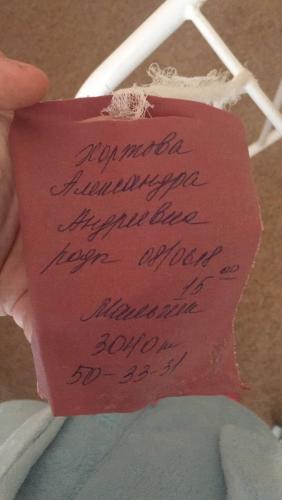 Хортова
Александра
Андреевна
родп 08/06.18
15 00
Мальчик
3040 гр
50-33-31